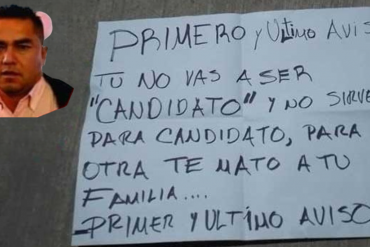 PRIMERO y ULTIMO AVISO
TU NO VAS A SER
"CANDIDATO" y NO SIRVE
PARA CANDIDATO, PARA
OTRA TE MATO A TU
FAMILIA....
PRIMER y ULTIMO AVISO